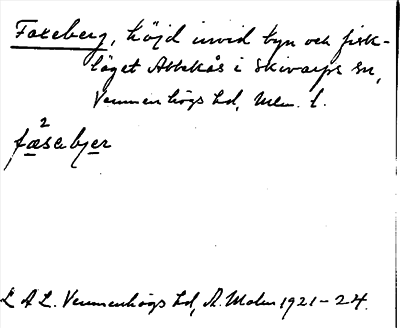 Faxeberg, höjd invid byn och fisk-
läget Abbekås i Skivarps sn,
Vemmenhögs hd, Mlm. l.
fæ²sabjer
L A L. Vemmenhögs hd, A. Malm 1921-24.